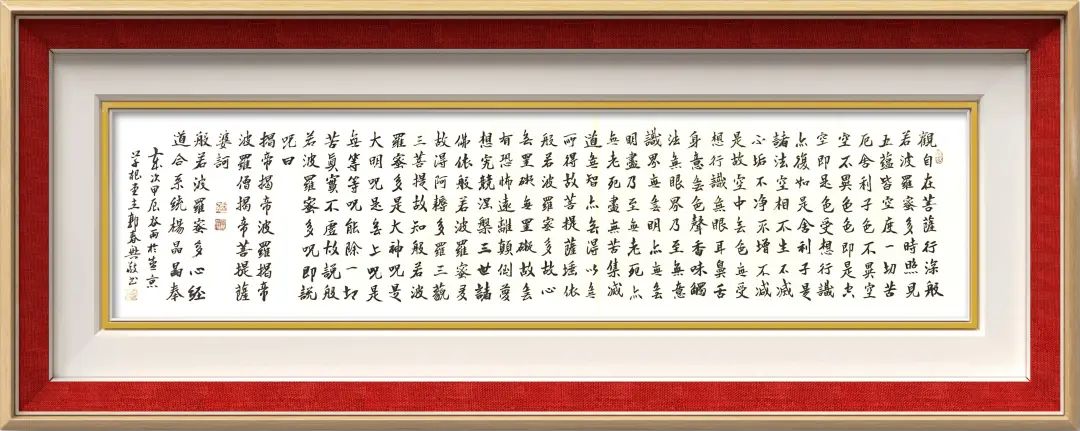 觀自在菩薩行深般
若波羅蜜多時照見
五蘊皆空度一切苦
厄舍利子色不異空
空不異色色即是空
空即是色受想行識
亦復如是舍利子是
諸法空相不生不滅
不垢不净不增不減
是故空中無色無受
想行識無眼耳鼻舌
身意無色聲香味觸
法無眼界乃至無意
識界無無明亦無無
明盡乃至無老死亦
無老死盡無苦集滅
道無智亦無得以無
所得故菩提薩埵依
般若波羅蜜多故心
無罣礙無罣礙故無
有恐怖遠離顛倒夢
想究竟涅槃三世諸
佛依般若波羅蜜多
故得阿耨多羅三藐
三菩提故知般若波
羅蜜多是大神咒是
大明咒是無上咒是
無等等咒能除一切
苦真實不虛故說般
若波羅蜜多咒即說
咒曰
揭帝揭帝波羅揭帝
波羅僧揭帝菩提薩
婆訶
般若波羅蜜多心經
道合系統楊晶晶奉
歲次甲辰谷雨於燕京
堂主郭春興敬書